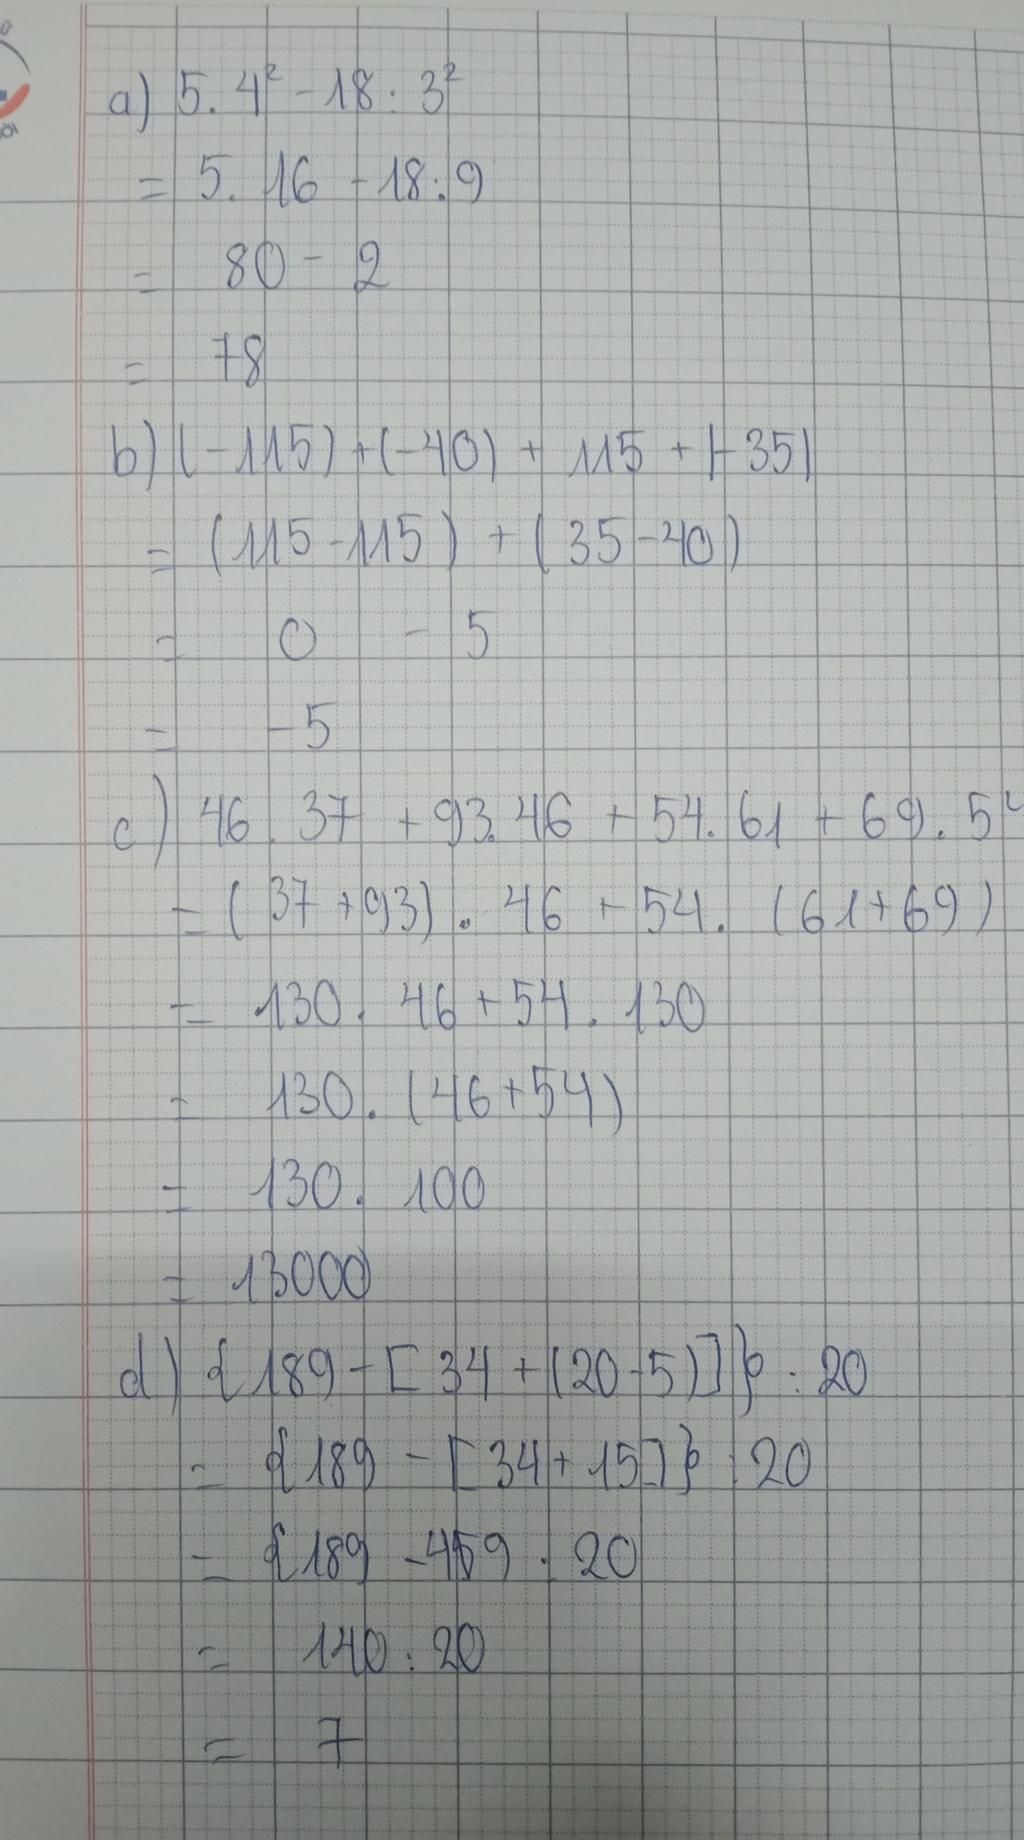 a) 5. 4² - 18 : 3²
= 5. 16 - 18 : 9
= 80 - 2
= 78
b) (-115) + (-40) + 115 + |-35|
= (115 - 115) + (35 - 40)
= 0 - 5
= -5
c) 46. 37 + 93. 46 + 54. 61 + 69. 5
= (37 + 93). 46 + 54. (61 + 69)
= 130. 46 + 54. 130
= 130. (46 + 54)
= 130. 100
= 13000
d) {189 - [34 + (20 - 5)]} : 20
= {189 - [34 + 15]} : 20
= {189 - 49} : 20
= 140 : 20
= 7